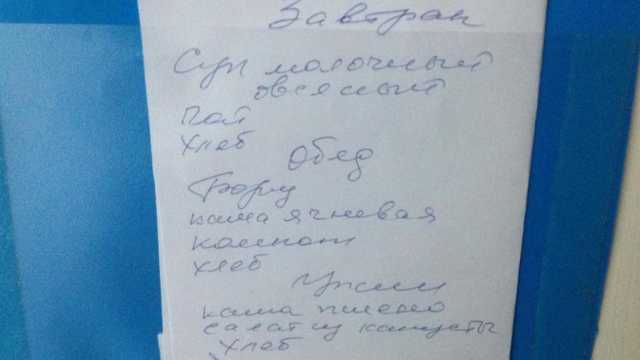 Завтрак
Суп молочный
овсяный
Чай
хлеб
Обед
Борщ
каша ячневая
компот
хлеб
Ужин
каша пшено
салат из капусты
хлеб